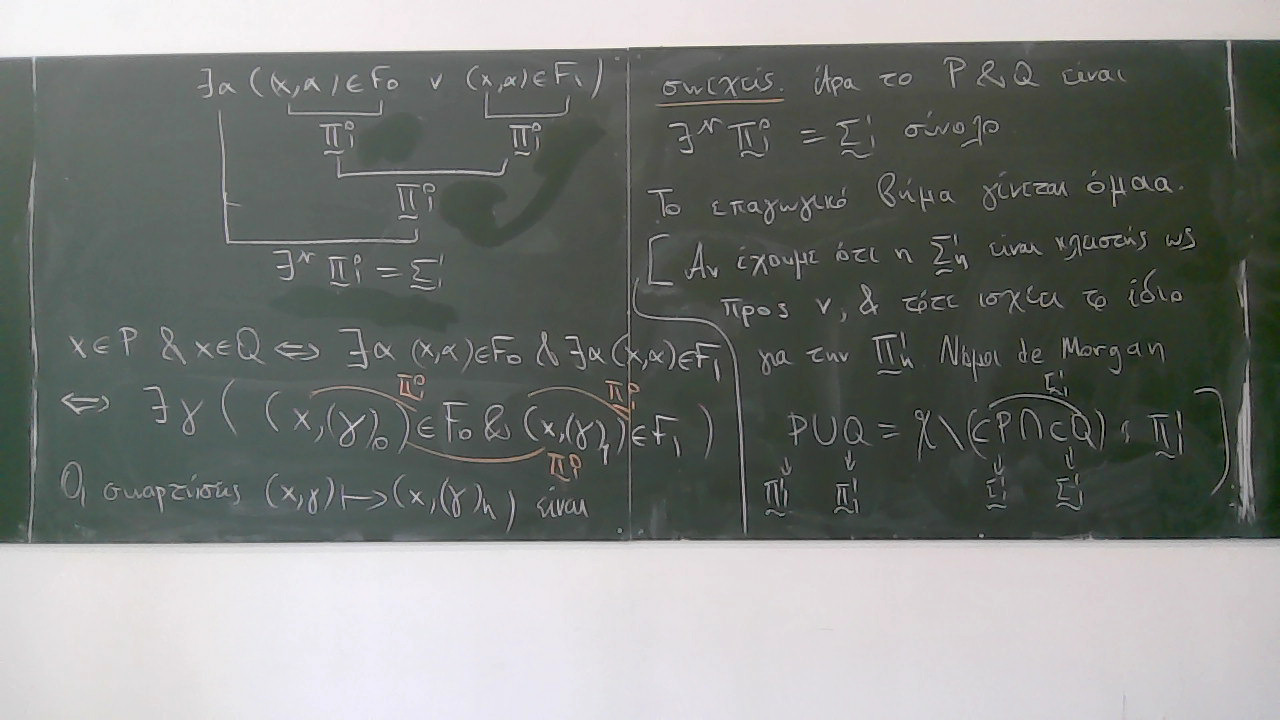 ∃α ( (x,α) ∈ F₀ ∨ (x,α) ∈ F₁ )
Π⁰₁ Π⁰₁
Π⁰₁
∃^𝒩 Π⁰₁ = Σ¹₁
x ∈ P & x ∈ Q ⇔ ∃α (x,α) ∈ F₀ & ∃α (x,α) ∈ F₁
Π⁰₁ Π⁰₁
⇔ ∃γ ( (x,(γ)₀) ∈ F₀ & (x,(γ)₁) ∈ F₁ )
Π⁰₁
Οι συναρτήσεις (x,γ) ↦ (x,(γ)ₙ) είναι
συνεχείς. Άρα το P & Q είναι
∃^𝒩 Π⁰₁ = Σ¹₁ σύνολο
Το επαγωγικό βήμα γίνεται όμοια.
[ Αν έχουμε ότι η Σ¹ₙ είναι κλειστής ως
προς ∨, & τότε ισχύει το ίδιο
για την Π¹ₙ Νόμοι de Morgan
Σ¹₁
P ∪ Q = 𝒳 \ (cP ∩ cQ) ∈ Π¹₁ ]
↓ ↓ ↓ ↓
Π¹₁ Π¹₁ Σ¹₁ Σ¹₁